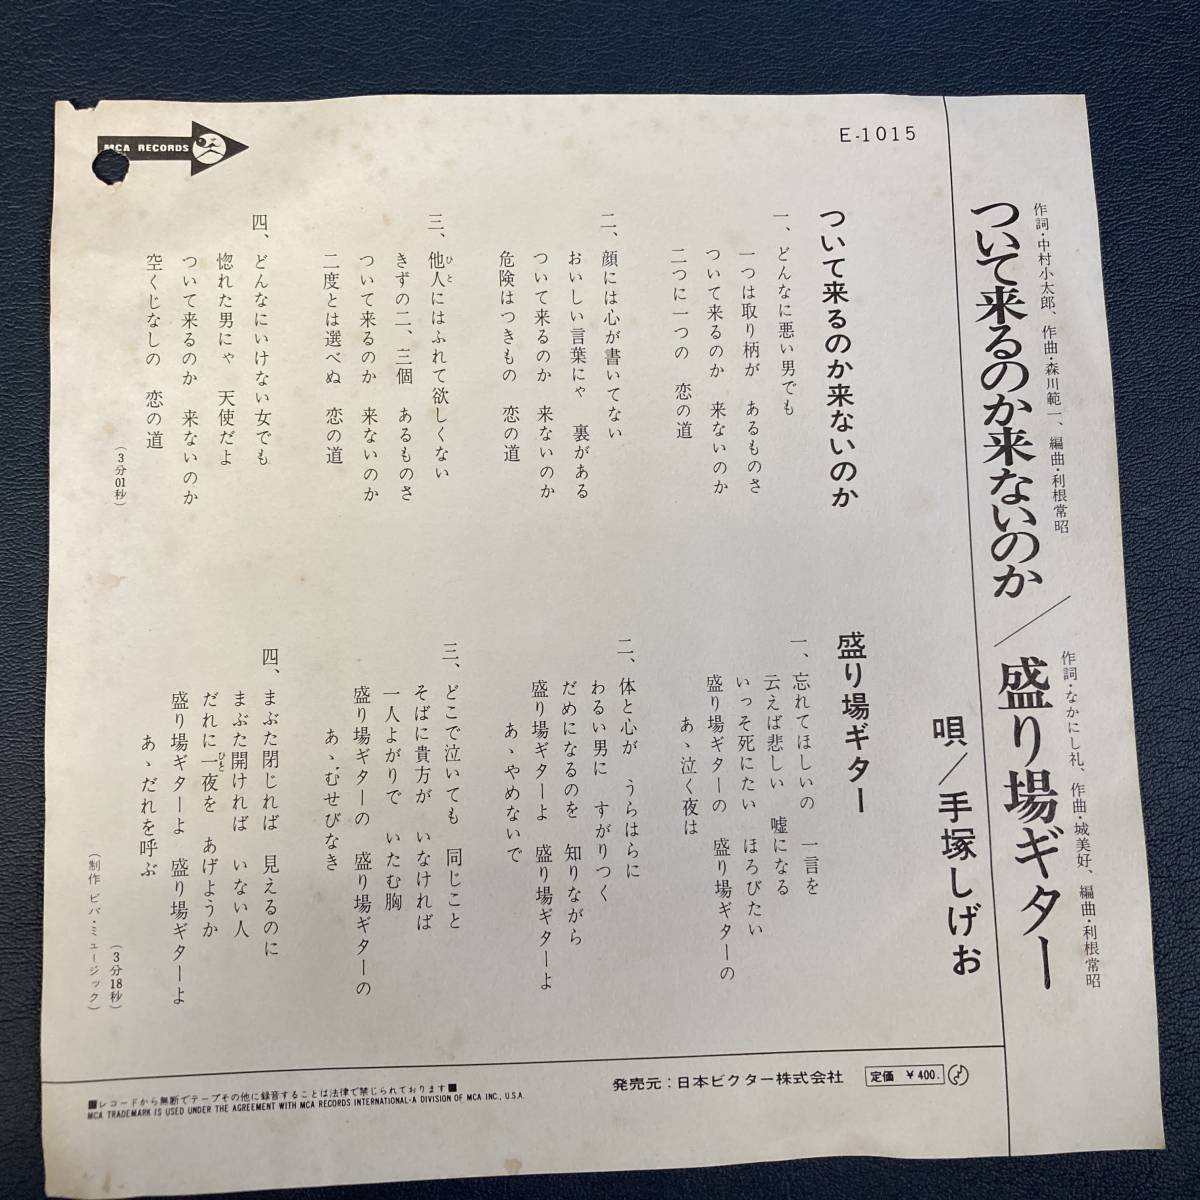 作詞・中村小太郎、作曲・森川範一、編曲・利根常昭
ついて来るのか来ないのか／盛り場ギター
作詞・なかにし礼、作曲・城美好、編曲・利根常昭
唄／手塚しげお
E-1015
MCA RECORDS
ついて来るのか来ないのか
一、どんなに悪い男でも
一つは取り柄が あるものさ
ついて来るのか 来ないのか
二つに一つの 恋の道
二、顔には心が書いてない
おいしい言葉にゃ 裏がある
ついて来るのか 来ないのか
危険はつきもの 恋の道
三、他人にはふれて欲しくない
ひと
きずの二、三個 あるものさ
ついて来るのか 来ないのか
二度とは選べぬ 恋の道
四、どんなにいけない女でも
惚れた男にゃ 天使だよ
ついて来るのか 来ないのか
空くじなしの 恋の道
（3分01秒）
盛り場ギター
一、忘れてほしいの 一言を
云えば悲しい 嘘になる
いっそ死にたい ほろびたい
盛り場ギターの 盛り場ギターの
あゝ泣く夜は
二、体と心が うらはらに
わるい男に すがりつく
だめになるのを 知りながら
盛り場ギターよ 盛り場ギターよ
あゝやめないで
三、どこで泣いても 同じこと
そばに貴方が いなければ
一人よがりで いたむ胸
盛り場ギターの 盛り場ギターの
あゝむせびなき
四、まぶた閉じれば 見えるのに
まぶた開ければ いない人
だれに一夜を あげようか
ひと
盛り場ギターよ 盛り場ギターよ
あゝだれを呼ぶ
（3分18秒）
（制作 ビバ・ミュージック）
発売元：日本ビクター株式会社 定価 ￥400.
■レコードから無断でテープその他に録音することは法律で禁じられております■
MCA TRADEMARK IS USED UNDER THE AGREEMENT WITH MCA RECORDS INTERNATIONAL-A DIVISION OF MCA INC., U.S.A.